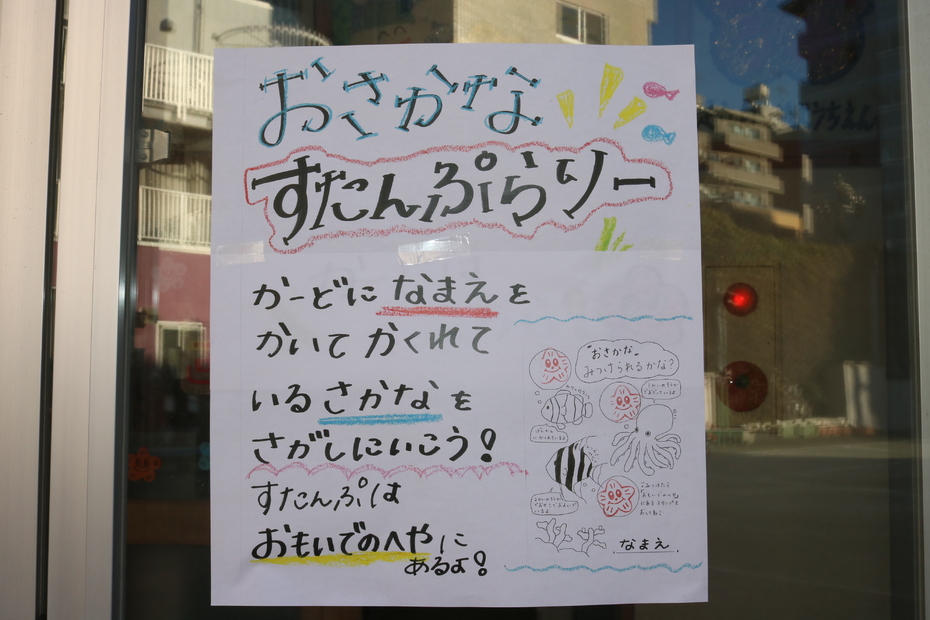 おさかな
すたんぷらりー
かーどに なまえを
かいて かくれて
いる さかなを
さがしにいこう!
すたんぷは
おもいでのへやに
あるよ!
"おさかな"
みつけられるかな?
なまえ
うちえん